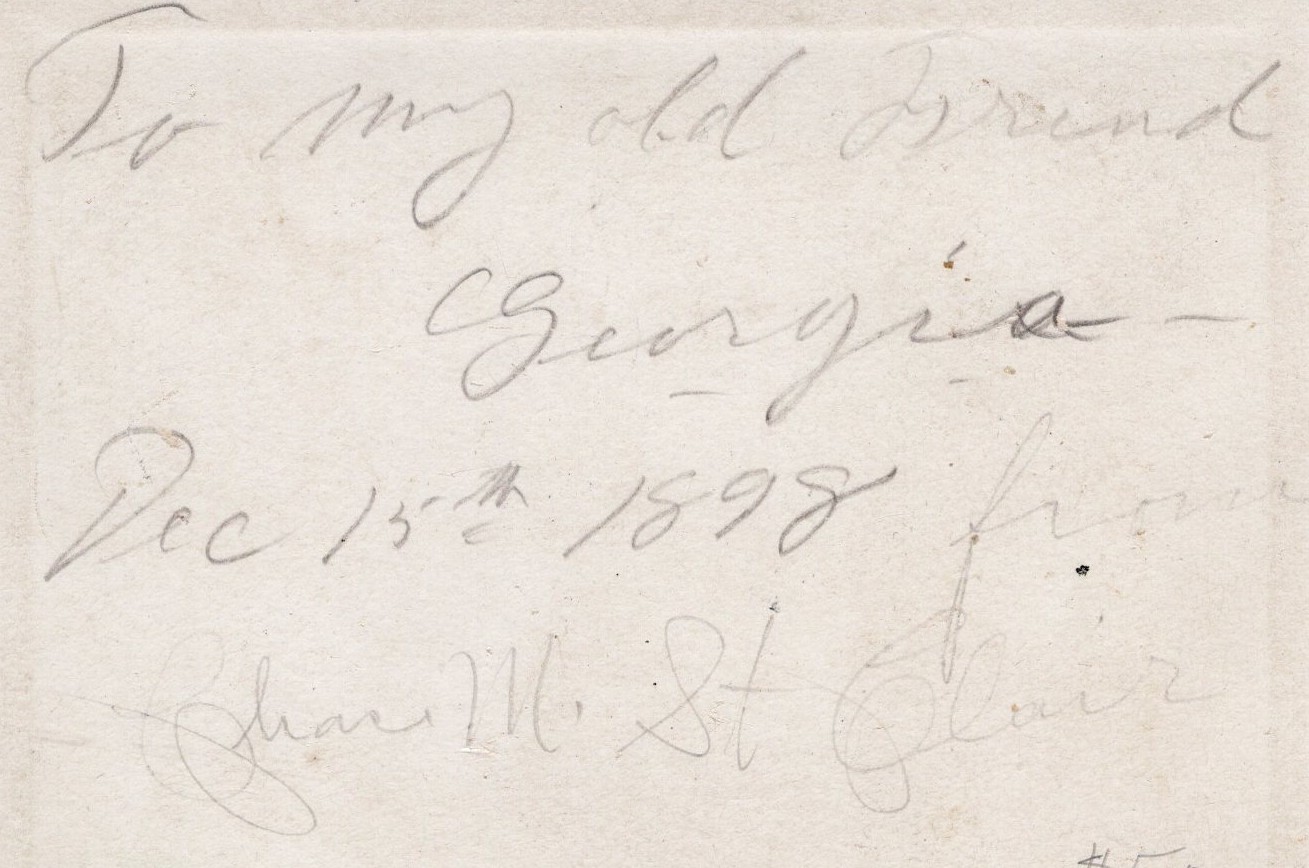 To my old Friend
Georgia —
Dec 15th 1898 from
Chas. M. St Clair